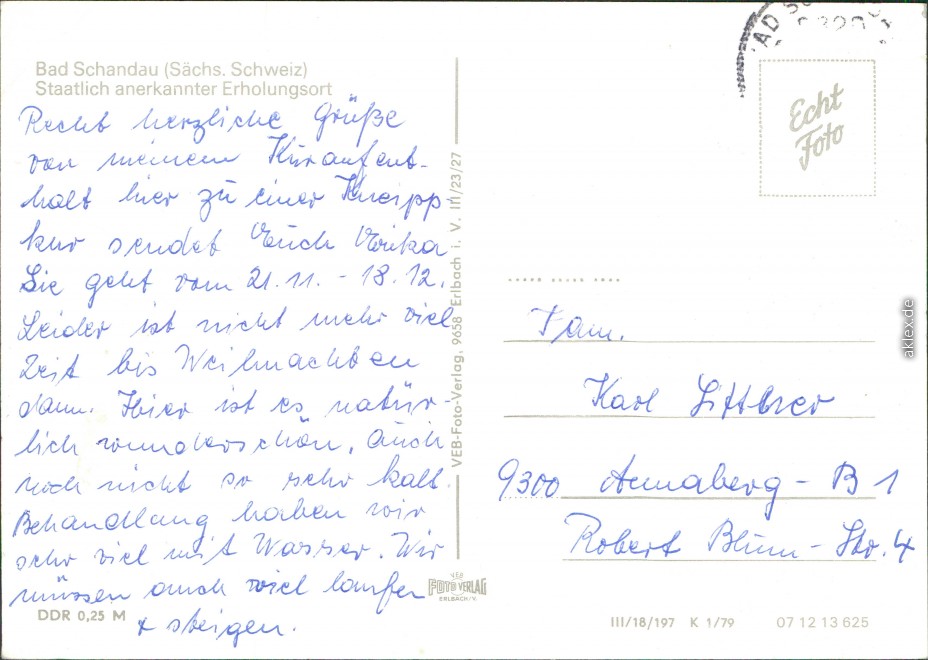 Bad Schandau (Sächs. Schweiz)
Staatlich anerkannter Erholungsort
Recht herzliche Grüße
von meinem Kuraufent-
halt hier zu einer Kneipp-
kur sendet Euch Erika
Sie geht vom 21.11. - 18.12.
Leider ist nicht mehr viel
Zeit bis Weihnachten
dann. Hier ist es natür-
lich wunderschön. Auch
noch nicht so sehr kalt.
Behandlung haben wir
sehr viel mit Wasser. Wir
müssen auch viel laufen
+ steigen.
DDR 0,25 M
VEB-Foto-Verlag, 9658 Erlbach i. V. III/23/27
VEB
FOTO VERLAG
ERLBACH/V.
Echt
Foto
Fam.
Karl Littbrer
9300 Annaberg - B 1
Robert Blum-Str. 4
III/18/197 K 1/79 07 12 13 625
aklex.de